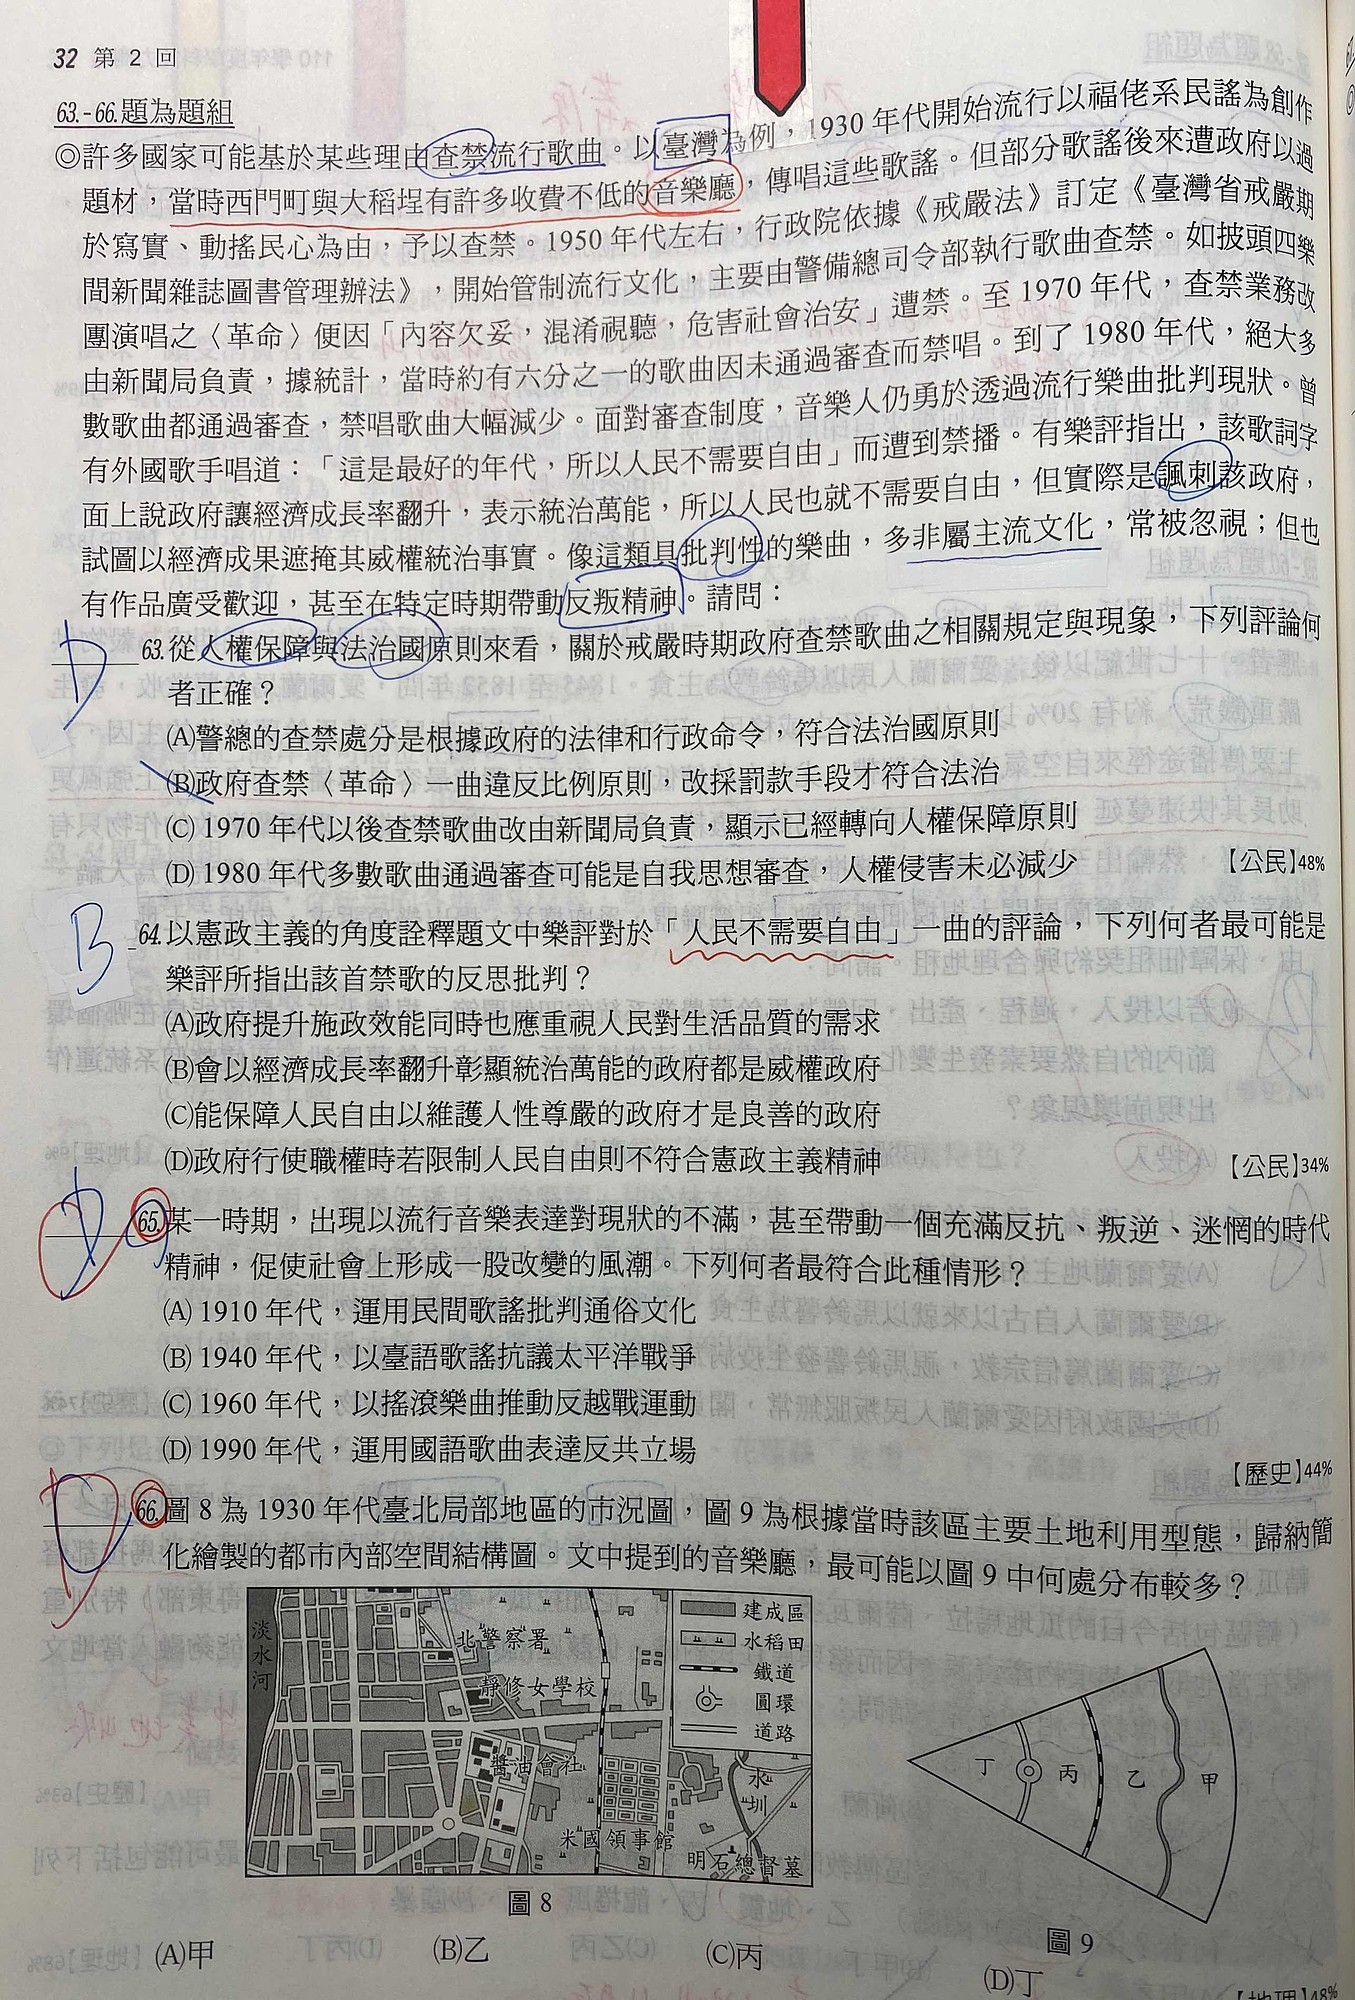 32 第 2 回
63.-66.題為題組
◎許多國家可能基於某些理由查禁流行歌曲。以臺灣為例，1930 年代開始流行以福佬系民謠為創作
題材，當時西門町與大稻埕有許多收費不低的音樂廳，傳唱這些歌謠。但部分歌謠後來遭政府以過
於寫實、動搖民心為由，予以查禁。1950 年代左右，行政院依據《戒嚴法》訂定《臺灣省戒嚴期
間新聞雜誌圖書管理辦法》，開始管制流行文化，主要由警備總司令部執行歌曲查禁。如披頭四樂
團演唱之〈革命〉便因「內容欠妥，混淆視聽，危害社會治安」遭禁。至 1970 年代，查禁業務改
由新聞局負責，據統計，當時約有六分之一的歌曲因未通過審查而禁唱。到了 1980 年代，絕大多
數歌曲都通過審查，禁唱歌曲大幅減少。面對審查制度，音樂人仍勇於透過流行樂曲批判現狀。曾
有外國歌手唱道：「這是最好的年代，所以人民不需要自由」而遭到禁播。有樂評指出，該歌詞字
面上說政府讓經濟成長率翻升，表示統治萬能，所以人民也就不需要自由，但實際是諷刺該政府，
試圖以經濟成果遮掩其威權統治事實。像這類具批判性的樂曲，多非屬主流文化，常被忽視；但也
有作品廣受歡迎，甚至在特定時期帶動反叛精神。請問：
D 63.從人權保障與法治國原則來看，關於戒嚴時期政府查禁歌曲之相關規定與現象，下列評論何
者正確？
(A)警總的查禁處分是根據政府的法律和行政命令，符合法治國原則
(B)政府查禁〈革命〉一曲違反比例原則，改採罰款手段才符合法治
(C) 1970 年代以後查禁歌曲改由新聞局負責，顯示已經轉向人權保障原則
(D) 1980 年代多數歌曲通過審查可能是自我思想審查，人權侵害未必減少 【公民】48%
B 64.以憲政主義的角度詮釋題文中樂評對於「人民不需要自由」一曲的評論，下列何者最可能是
樂評所指出該首禁歌的反思批判？
(A)政府提升施政效能同時也應重視人民對生活品質的需求
(B)會以經濟成長率翻升彰顯統治萬能的政府都是威權政府
(C)能保障人民自由以維護人性尊嚴的政府才是良善的政府
(D)政府行使職權時若限制人民自由則不符合憲政主義精神 【公民】34%
D 65.某一時期，出現以流行音樂表達對現狀的不滿，甚至帶動一個充滿反抗、叛逆、迷惘的時代
精神，促使社會上形成一股改變的風潮。下列何者最符合此種情形？
(A) 1910 年代，運用民間歌謠批判通俗文化
(B) 1940 年代，以臺語歌謠抗議太平洋戰爭
(C) 1960 年代，以搖滾樂曲推動反越戰運動
(D) 1990 年代，運用國語歌曲表達反共立場
【歷史】44%
D 66.圖 8 為 1930 年代臺北局部地區的市況圖，圖 9 為根據當時該區主要土地利用型態，歸納簡
化繪製的都市內部空間結構圖。文中提到的音樂廳，最可能以圖 9 中何處分布較多？
淡水河
北警察署
靜修女學校
醬油會社
米國領事館
明石總督墓
水圳
建成區
水稻田
鐵道
圓環
道路
丁 丙 乙 甲
圖 8
圖 9
(A)甲 (B)乙 (C)丙 (D)丁
【地理】48%